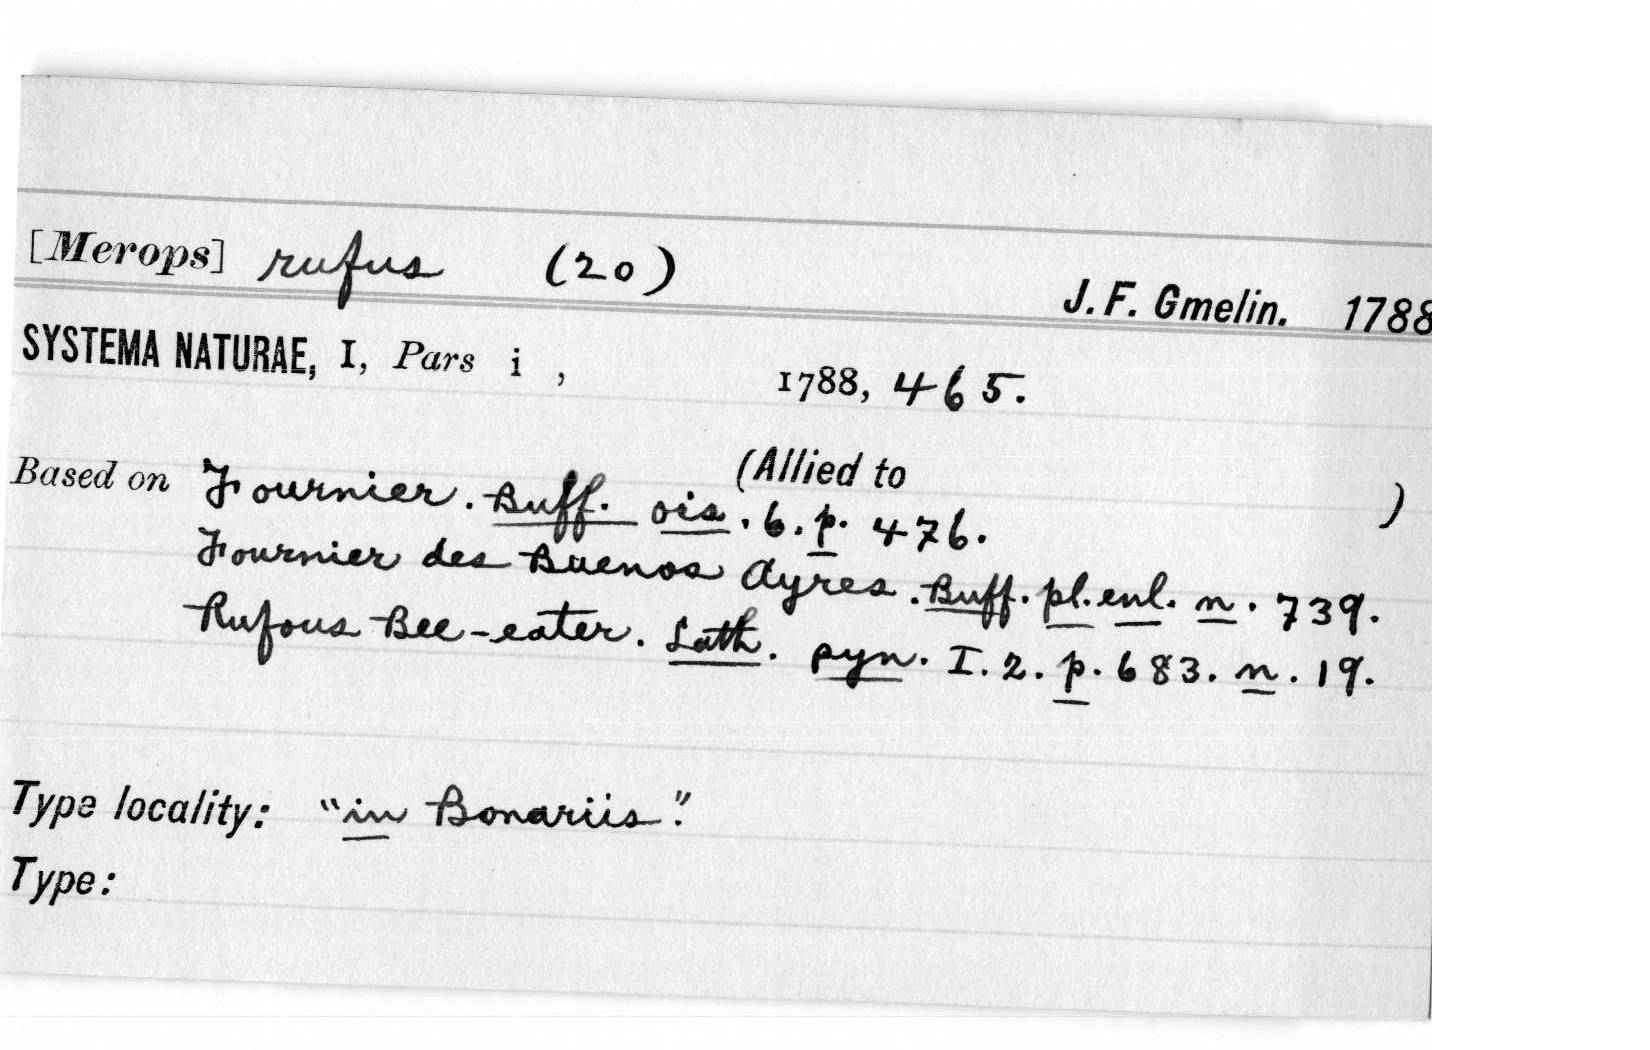 [Merops] rufus (20)
J. F. Gmelin. 1788
SYSTEMA NATURAE, I, Pars i , 1788, 465.
(Allied to )
Based on Fournier. Buff. ois. 6. p. 476.
Fournier des Buenos Ayres. Buff. pl. enl. n. 739.
Rufous Bee-eater. Lath. syn. I. 2. p. 683. n. 19.
Type locality: "in Bonariis."
Type: